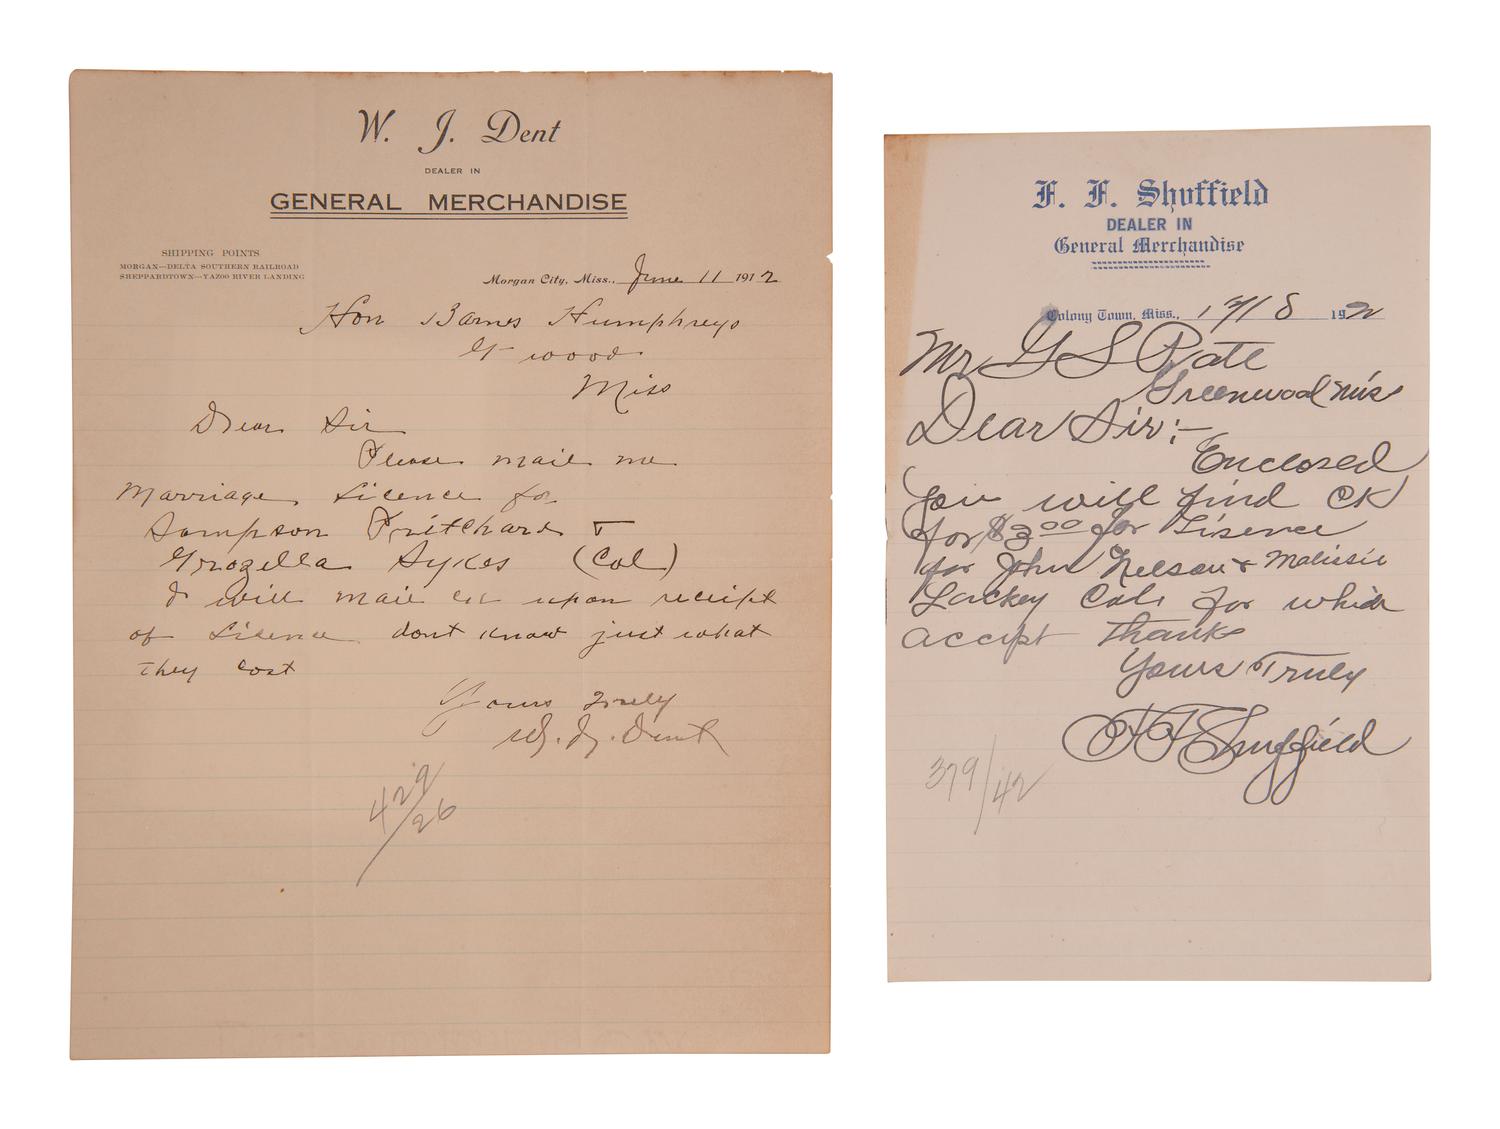 W. J. Dent
DEALER IN
GENERAL MERCHANDISE
SHIPPING POINTS
MORGAN—DELTA SOUTHERN RAILROAD
SHEPPARDTOWN—YAZOO RIVER LANDING
Morgan City, Miss., June 11 1912
Hon Barnes Humphreys
G wood
Miss
Dear Sir
Please mail me
Marriage Licence for
Sampson Pritchard &
Grozella Sykes (Col)
I will mail ck upon receipt
of Lisence dont know just what
They cost
Yours Truly
W. J. Dent
429/26
F. F. Shuffield
DEALER IN
General Merchandise
Colony Town, Miss., 12/18 192
Mr G S Pate
Greenwood Miss
Dear Sir:-
Enclosed
you will find CK
for $3.00 for Lisence
for John Nelson & Malissie
Lackey Col. for which
accept Thanks
Yours Truly
F F Shuffield
379/42